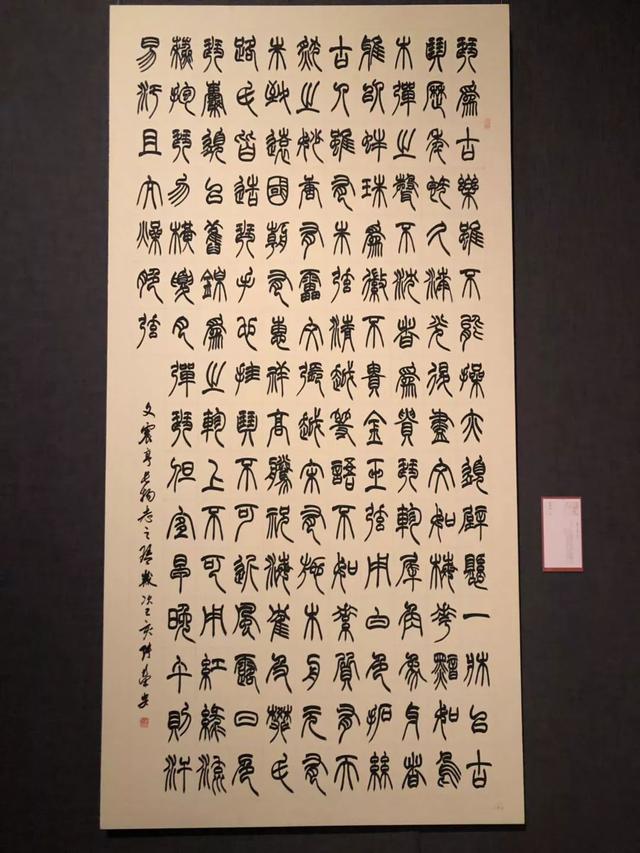 琴為古樂雖不能操亦須壁懸一床以古
琴歷年既久漆光退盡文如梅花黯如烏
木彈之聲不沈者為貴琴軫犀角象牙者
雅以蚌珠為徽不貴金玉弦用白色柘絲
古人雖有朱弦清越等語不如素質有天
然之妙唐有雷文張越宋有施木舟元有
朱致遠國朝有惠祥高騰祝海鶴及樊氏
路氏皆造琴手也挂琴不可近風露日色
琴囊須以舊錦為之軫上不可用紅綠流
蘇抱琴勿橫夏月彈琴但宜早晚午則汗
易汙且太燥脆弦
文震亨長物志之琴歲次己亥